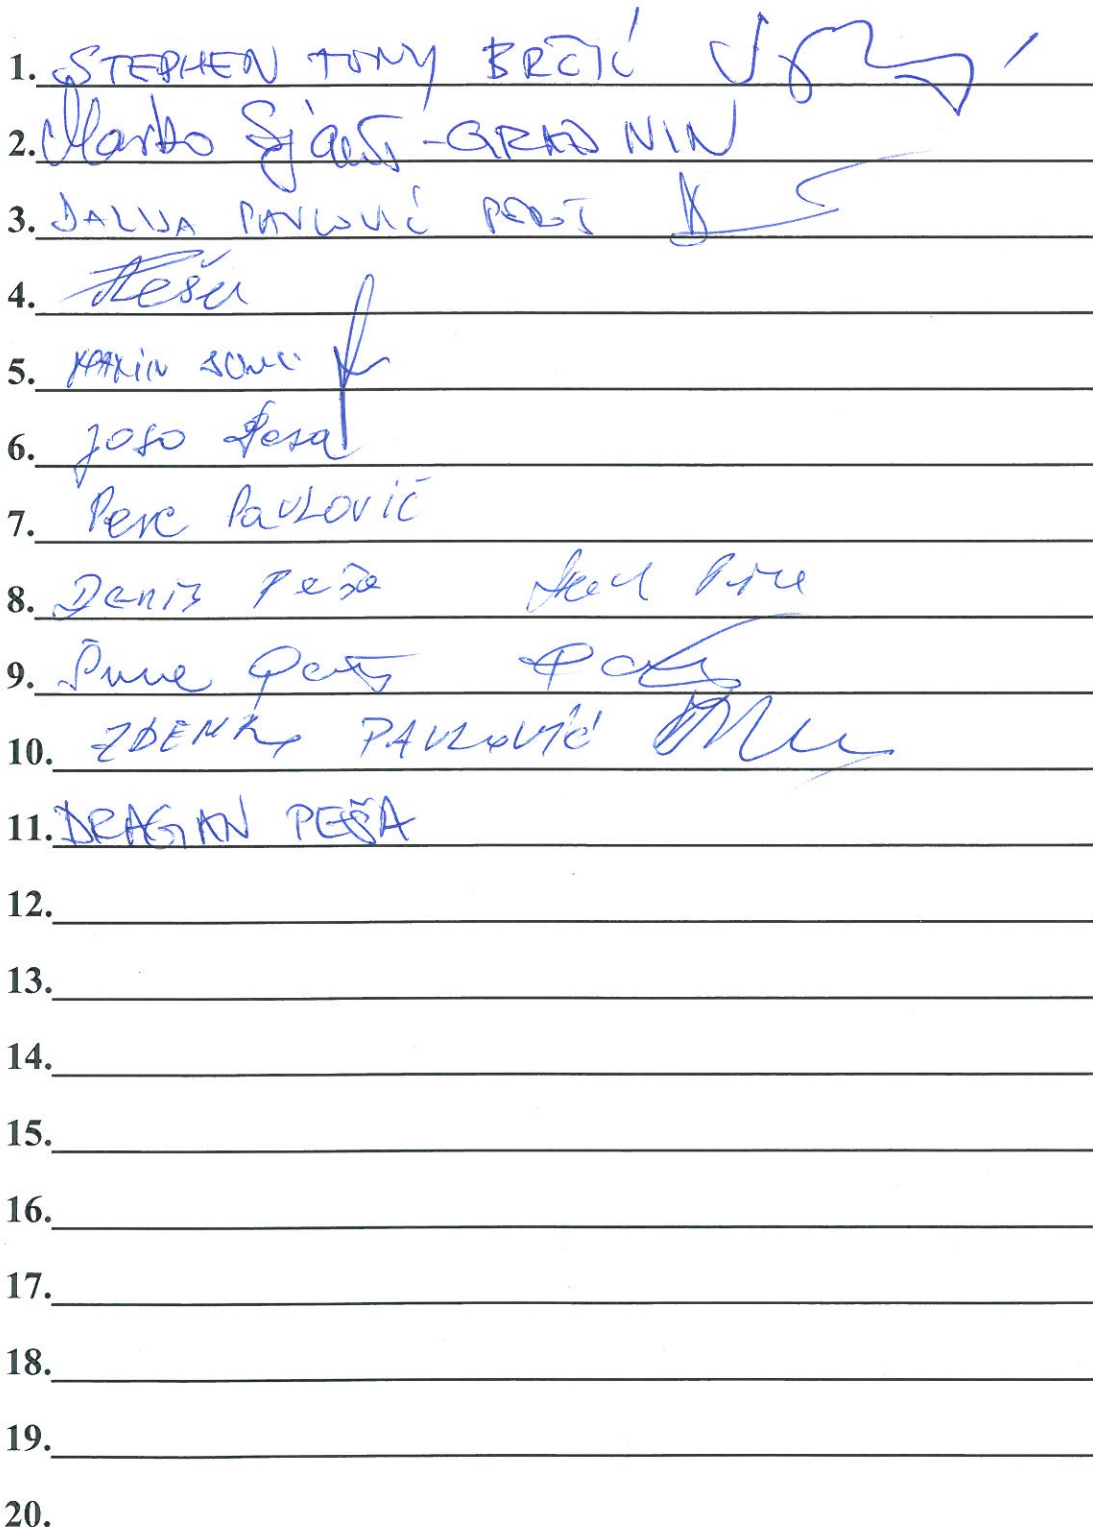 1. STEPHEN TONY BRČIĆ
2. Marko -GRAD NIN
3. DALIJA PAVLOVIĆ
4. Peša
5. MARIN
6. JOSO Pesa
7. Pere PavLOVIĆ
8. Denis Peša
9. Šime
10. ZDENKO PAVLOVIĆ
11. DRAGAN PEŠA
12.
13.
14.
15.
16.
17.
18.
19.
20.